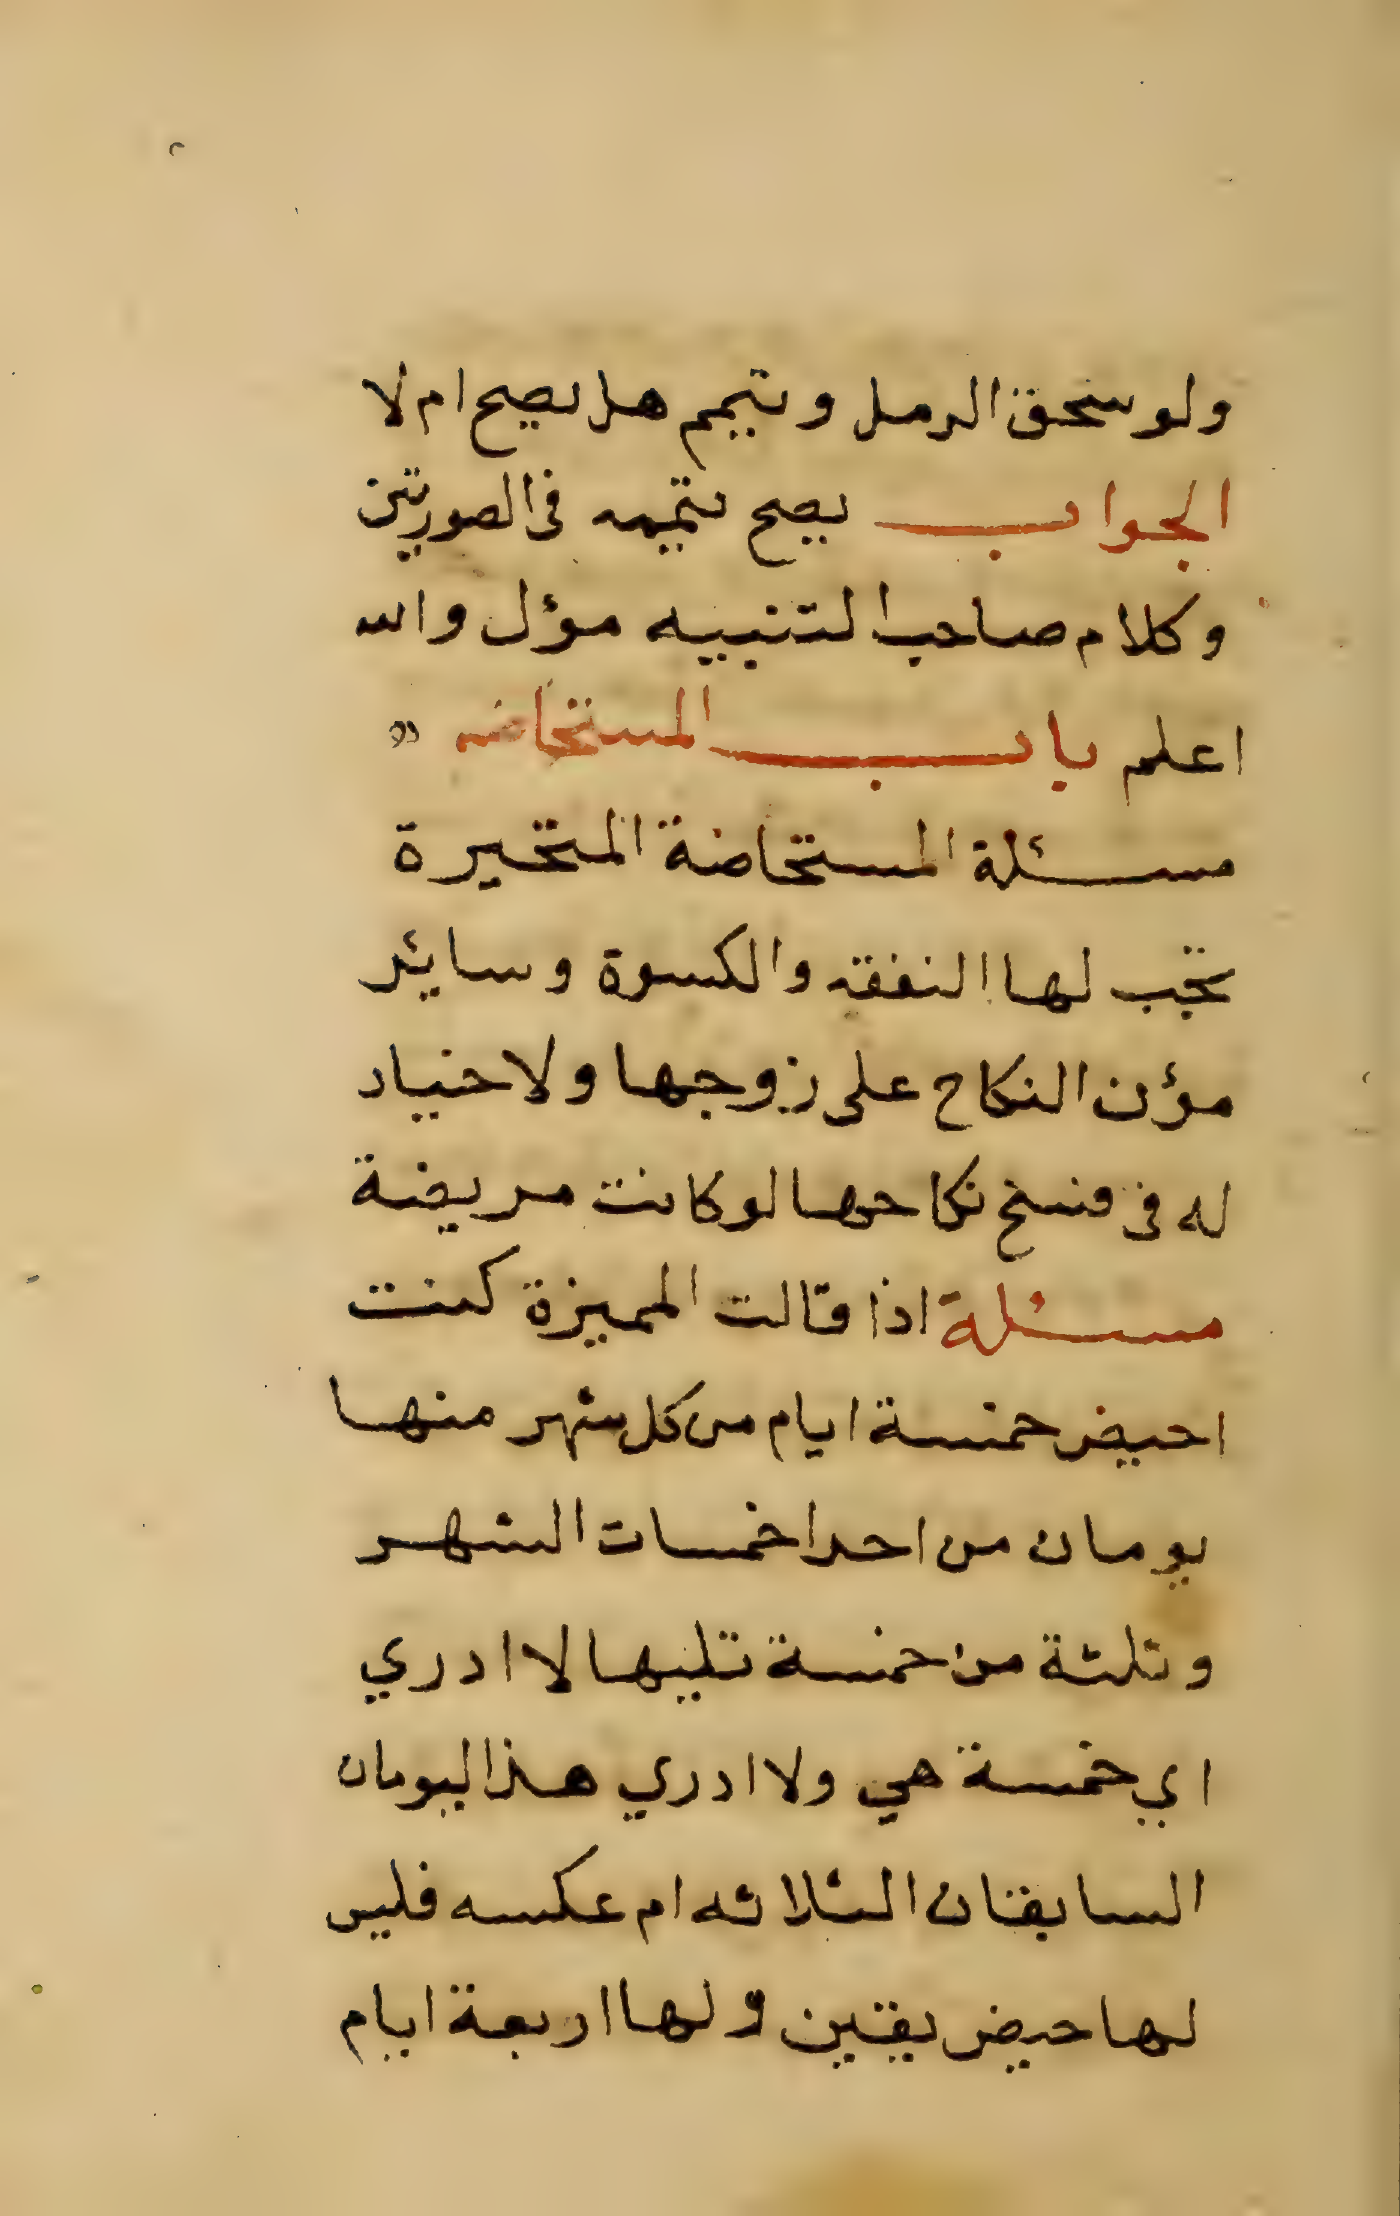 ولو سحق الرمل وتيمم هل يصح ام لا
الجواب يصح تيممه فى الصورتين
وكلام صاحب التنبيه مؤل والله
اعلم باب المستحاضه
مسئلة المستحاضة المتحيرة
تجب لها النفقه والكسوة وسايئر
مؤن النكاح على زوجها ولا خيار
له فى فسخ نكاحها لو كانت مريضة
مسئلة اذا قالت المميزة كنت
احيض خمسة ايام من كل شهر منها
يومان من احدا خمسات الشهر
وثلثة من خمسة تليها لا ادري
اي خمسة هي ولا ادري هذا اليومان
السابقان الثلاثه ام عكسه فليس
لها حيض يقين ولها اربعة ايام